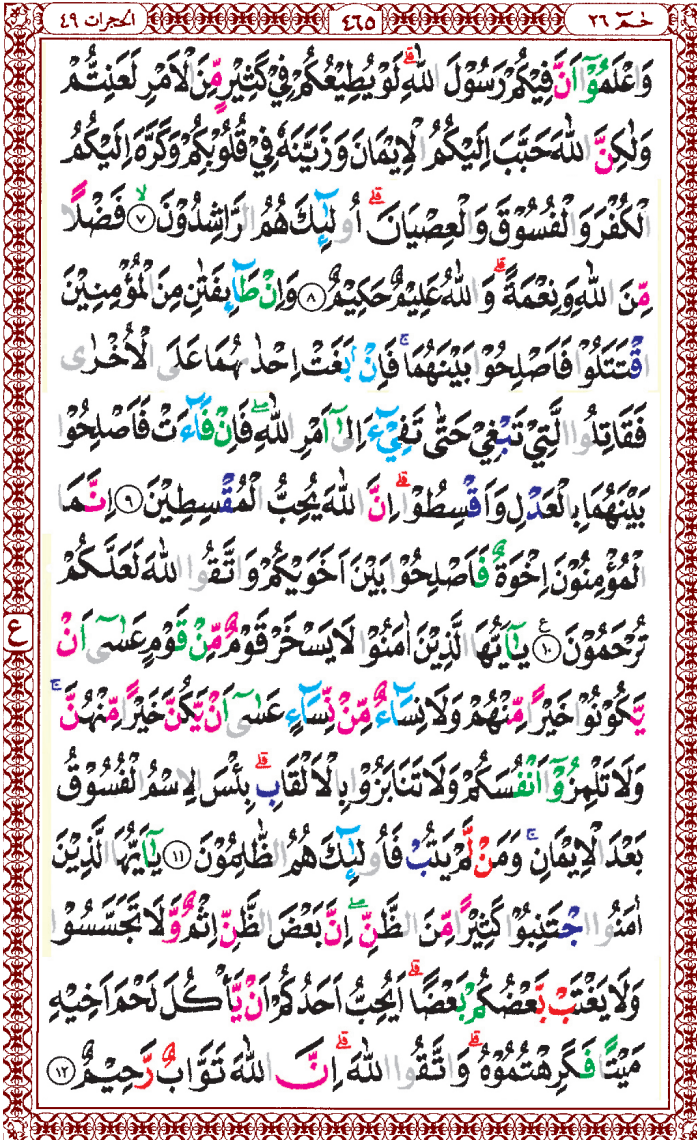 حٰمٓ ٢٦ ٤٦٥ الحجرات ٤٩
وَاعْلَمُوْۤا اَنَّ فِيْكُمْ رَسُوْلَ اللّٰهِ ؕ لَوْ يُطِيْعُكُمْ فِيْ كَثِيْرٍ مِّنَ الْاَمْرِ لَعَنِتُّمْ
وَلٰكِنَّ اللّٰهَ حَبَّبَ اِلَيْكُمُ الْاِيْمَانَ وَزَيَّنَهٗ فِيْ قُلُوْبِكُمْ وَكَرَّهَ اِلَيْكُمُ
الْكُفْرَ وَالْفُسُوْقَ وَالْعِصْيَانَ ؕ اُولٰٓئِكَ هُمُ الرَّاشِدُوْنَ ۙ﴿٧﴾ فَضْلًا
مِّنَ اللّٰهِ وَنِعْمَةً ؕ وَاللّٰهُ عَلِيْمٌ حَكِيْمٌ ﴿٨﴾ وَاِنْ طَآئِفَتٰنِ مِنَ الْمُؤْمِنِيْنَ
اقْتَتَلُوْا فَاَصْلِحُوْا بَيْنَهُمَا ۚ فَاِنْۢ بَغَتْ اِحْدٰىهُمَا عَلَى الْاُخْرٰى
فَقَاتِلُوا الَّتِيْ تَبْغِيْ حَتّٰى تَفِيْٓءَ اِلٰٓى اَمْرِ اللّٰهِ ۖ فَاِنْ فَآءَتْ فَاَصْلِحُوْا
بَيْنَهُمَا بِالْعَدْلِ وَاَقْسِطُوْا ؕ اِنَّ اللّٰهَ يُحِبُّ الْمُقْسِطِيْنَ ﴿٩﴾ اِنَّمَا
الْمُؤْمِنُوْنَ اِخْوَةٌ فَاَصْلِحُوْا بَيْنَ اَخَوَيْكُمْ وَاتَّقُوا اللّٰهَ لَعَلَّكُمْ
تُرْحَمُوْنَ ﴿١٠﴾ ع يٰٓاَيُّهَا الَّذِيْنَ اٰمَنُوْا لَا يَسْخَرْ قَوْمٌ مِّنْ قَوْمٍ عَسٰٓى اَنْ
يَّكُوْنُوْا خَيْرًا مِّنْهُمْ وَلَا نِسَآءٌ مِّنْ نِّسَآءٍ عَسٰٓى اَنْ يَّكُنَّ خَيْرًا مِّنْهُنَّ ۚ
وَلَا تَلْمِزُوْۤا اَنْفُسَكُمْ وَلَا تَنَابَزُوْا بِالْاَلْقَابِ ؕ بِئْسَ الِاسْمُ الْفُسُوْقُ
بَعْدَ الْاِيْمَانِ ۚ وَمَنْ لَّمْ يَتُبْ فَاُولٰٓئِكَ هُمُ الظّٰلِمُوْنَ ﴿١١﴾ يٰٓاَيُّهَا الَّذِيْنَ
اٰمَنُوا اجْتَنِبُوْا كَثِيْرًا مِّنَ الظَّنِّ ۖ اِنَّ بَعْضَ الظَّنِّ اِثْمٌ وَّلَا تَجَسَّسُوْا
وَلَا يَغْتَبْ بَّعْضُكُمْ بَعْضًا ؕ اَيُحِبُّ اَحَدُكُمْ اَنْ يَّاْكُلَ لَحْمَ اَخِيْهِ
مَيْتًا فَكَرِهْتُمُوْهُ ؕ وَاتَّقُوا اللّٰهَ ؕ اِنَّ اللّٰهَ تَوَّابٌ رَّحِيْمٌ ﴿١٢﴾